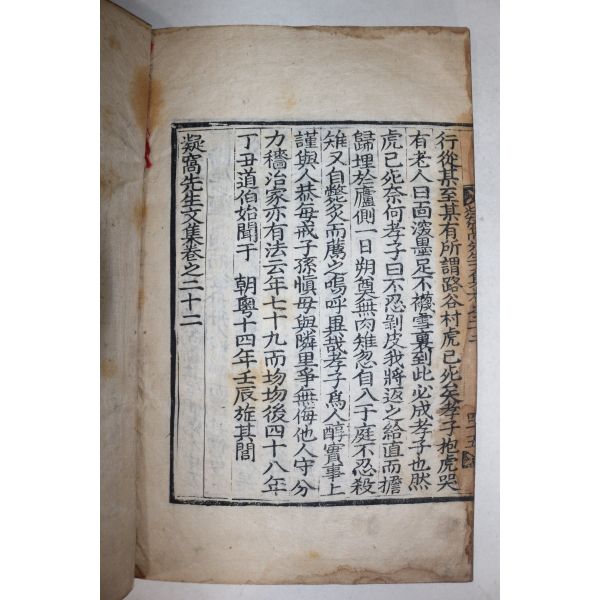 行從其至其有所謂路谷村虎已死矣孝子抱虎哭
有老人曰面潑墨足不襪雪裏到此必成孝子也然
虎已死奈何孝子曰不忍剝皮我將返之給直而擔
歸埋於廬側一日朔奠無肉雉忽自入于庭不忍殺
雉又自斃炙而薦之嗚呼異哉孝子爲人醇實事上
謹與人恭每戒子孫愼毋與隣里爭無侮他人守分
力穡治家亦有法云年七十九而歾歾後四十八年
丁丑道伯始聞于 朝粤十四年壬辰旌其閭
凝窩先生文集卷之二十二